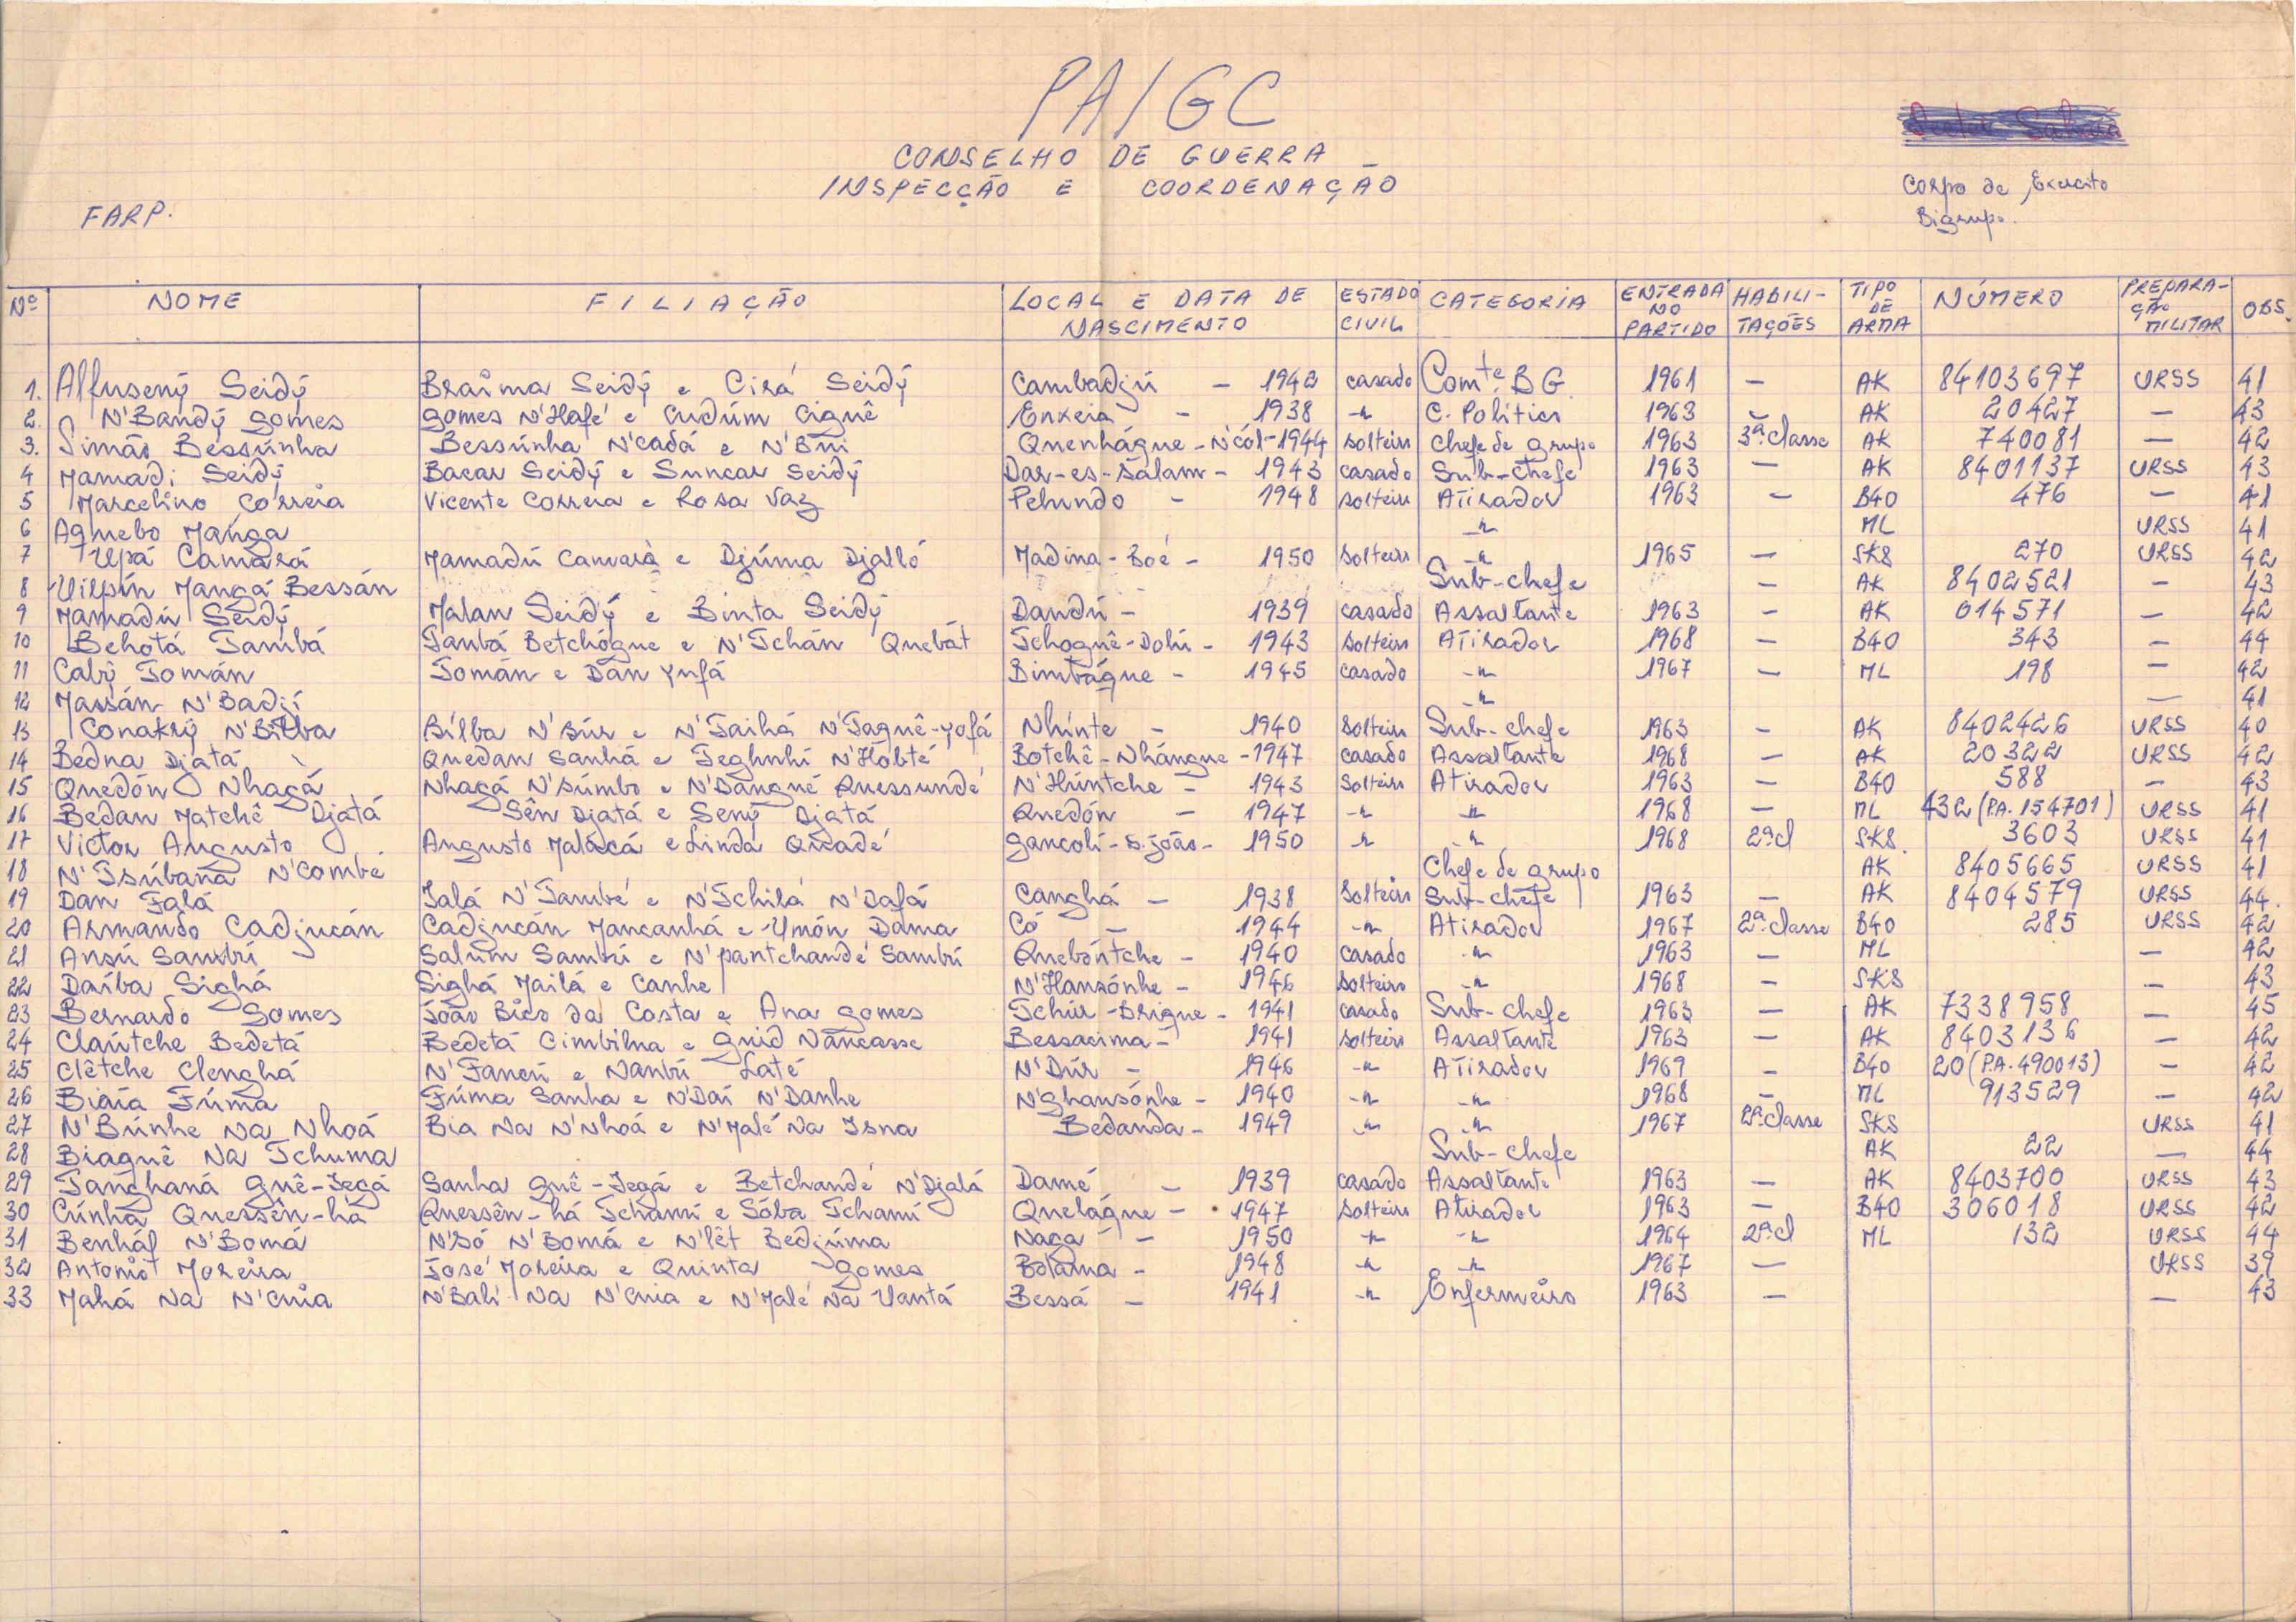 PAIGC
CONSELHO DE GUERRA
INSPECÇÃO E COORDENAÇÃO
Corpo de Exercito
Bigrupo.
FARP.
Nº NOME FILIAÇÃO LOCAL E DATA DE NASCIMENTO ESTADO CIVIL CATEGORIA ENTRADA NO PARTIDO HABILI-TAÇÕES TIPO DE ARMA NÚMERO PREPARA-ÇÃO MILITAR OBS.
1. Alfusený Seidý Braima Seidý e Cirá Seidý Cambadjú - 1942 casado Comte BG. 1961 — AK 84103697 URSS 41
2. N'Bandý Gomes Gomes N'Hafé e Cudúm Ciguê Enxeia - 1938 -"- C. Politico 1963 — AK 20427 — 43
3. Simão Bessúnha Bessúnha N'cadá e N'Bni Quenhágue - N'cól - 1944 solteiro Chefe de grupo 1963 3ª classe AK 740081 — 42
4 Mamadi Seidý Bacar Seidý e Suncar Seidý Dar-es-Salam - 1943 casado Sub-chefe 1963 — AK 8401137 URSS 43
5 Marcelino Correia Vicente Correia e Rosa Vaz Pelundo - 1948 solteiro Atirador 1963 — B40 476 — 41
6 Agnebo Manga -"- ML URSS 41
7 Upá Camará Mamadú Camará e Djúma Djalló Madina-Boé - 1950 solteiro -"- 1965 — SKS 270 URSS 42
8 Uilpín Mangá Bessán Sub-chefe — AK 8402521 — 43
9 Mamadú Seidý Malan Seidý e Binta Seidý Dandú - 1939 casado Assaltante 1963 — AK 014571 — 42
10 Behotá Tambá Tambá Betchógue e N'Tchán Quebát Tchoguê-Dolú - 1943 solteiro Atirador 1968 — B40 343 — 44
11 Calý Tomán Tomán e Dán Yufá Bimbágue - 1945 casado -"- 1967 — ML 198 — 42
12 Massán N'Badjí -"- — 41
13 Conakrý N'Bilba Bílba N'Búr e N'Taihá N'Taguê-Yofá Nhínte - 1940 solteiro Sub-chefe 1963 — AK 8402426 URSS 40
14 Bedna Djatá Quedan Sanhá e Teghnhi N'Hóbté Botchê-Nhángue - 1947 casado Assaltante 1968 — AK 20322 URSS 42
15 Quedón Nhagá Nhagá N'Súmbo e N'Dángué Quessundé N'Húntche - 1943 solteiro Atirador 1963 — B40 588 — 43
16 Bedan Matchê Djatá Sên Djatá e Sený Djatá Quedón - 1947 -"- -"- 1968 — ML 432 (P.A. 154701) URSS 41
17 Victor Augusto Augusto Malácá e Linda Quadé Gancolí-S. João - 1950 -"- -"- 1968 2ª cl SKS. 3603 URSS 41
18 N'Tsúbana N'Combé Chefe de grupo AK 8405665 URSS 41
19 Dan Falá Ialá N'També e N'Tchilá N'Dafá Canghá - 1938 solteiro Sub-chefe 1963 — AK 8404579 URSS 44.
20 Armando Cadjucán Cadjucán Mancanhá e Umón Dama Có - 1944 -"- Atirador 1967 2ª classe B40 285 URSS 42
21 Ansú Sambú Salúm Sambú e N'pantchandé Sambú Quebóntche - 1940 casado -"- 1963 — ML — 42
22 Daíba Sighá Sighá Mailá e Canhe N'Hansónhe - 1946 solteiro -"- 1968 — SKS — 43
23 Bernardo Gomes João Bico da Costa e Ana Gomes Tchúr-Brigue - 1941 casado Sub-chefe 1963 — AK 7338958 — 45
24 Claútche Bedetá Bedetá Cimbilna e Gnid Náncasse Bessacima - 1941 solteiro Assaltante 1963 — AK 8403136 — 42
25 Clêtche Clenghá N'Fancú e Nanbú Laté N'Dúr - 1946 -"- Atirador 1969 — B40 20 (P.A. 490013) — 42
26 Biáia Fúma Fúma Sanha e N'Daí N'Danhe N'Ghansónhe - 1940 -"- -"- 1968 — ML 913529 — 42
27 N'Búnhe Na Nhoá Bia Na N'Nhoá e N'Malé Na Isna Bedanda - 1949 -"- -"- 1967 2ª classe SKS URSS 41
28 Biaguê Na Tchuma Sub-chefe AK 22 — 44
29 Tanghaná Guê-Iegá Sanha Guê-Iegá e Betchandé N'Djalá Damé - 1939 casado Assaltante 1963 — AK 8403700 URSS 43
30 Cúnha Quessên-há Quessên-há Tchamí e Sóba Tchamí Quelágue - 1947 solteiro Atirador 1963 — B40 306018 URSS 42
31 Benháf N'Bomá N'Só N'Bomá e N'lêt Bedjúma Naga - 1950 -"- -"- 1964 2ª cl ML 132 URSS 44
32 Antonio Moreira José Moreira e Quinta Gomes Bolama - 1948 -"- -"- 1967 — URSS 39
33 Mahá Na N'Cnia N'Balí Na N'Cnia e N'Malé Na Uantá Bessá - 1941 -"- Enfermeiro 1963 — — 43